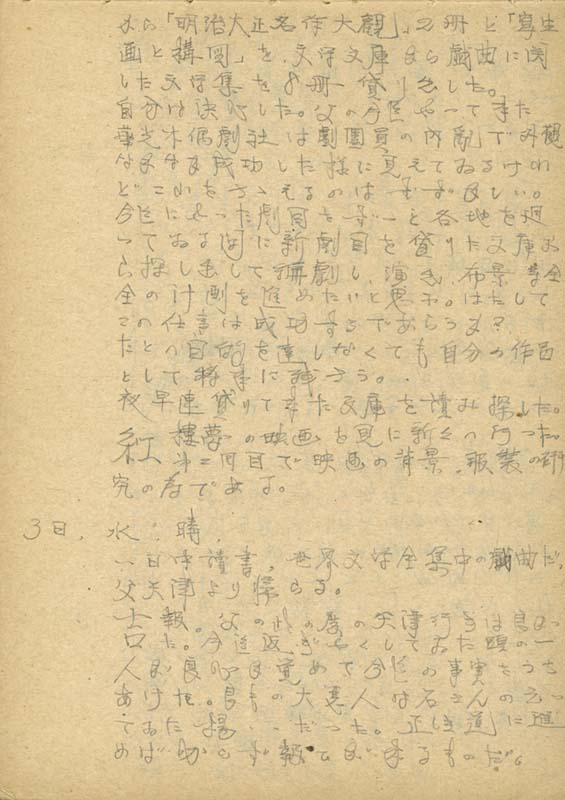 から「明治大正名作大観」2冊と「寫生
画と構図」を、文学文庫から戯曲に関
した文学集を8冊貸り出した。
自分は決心した。父の今迄やって来た
華光木偶劇社は劇團員の内乱で外観
はまあまあ成功した様に見えてゐるけれ
どこれをささえるのはむずかしい。
今迄にあった劇目をずーと各地を廻
ってゐる間に新劇目を貸りた文庫か
ら探し出して編劇し、演出、布景等全
全の計劃を進めたいと思ふ。はたして
この仕事は成功するであらうか?
たとへ目的を達しなくても自分の作品
として将来に残そう。
夜早速貸りて来た文庫を読み探した。
紅樓夢の映画を見に新々へ行った。
第二回目で映画の背景、服装の研
究の為である。
3日、水、晴、
一日中讀書、世界文学全集中の戯曲だ。
父天津より帰らる。
吉報。父の此の度の天津行きは良かっ
た。今迄 してゐた 一
人が良心に覚めて今迄の事実をうち
あけた。 の大悪人は石さんの云っ
てゐた楊 だった。正しき道に進
めば助からず報ひが来るものだ。